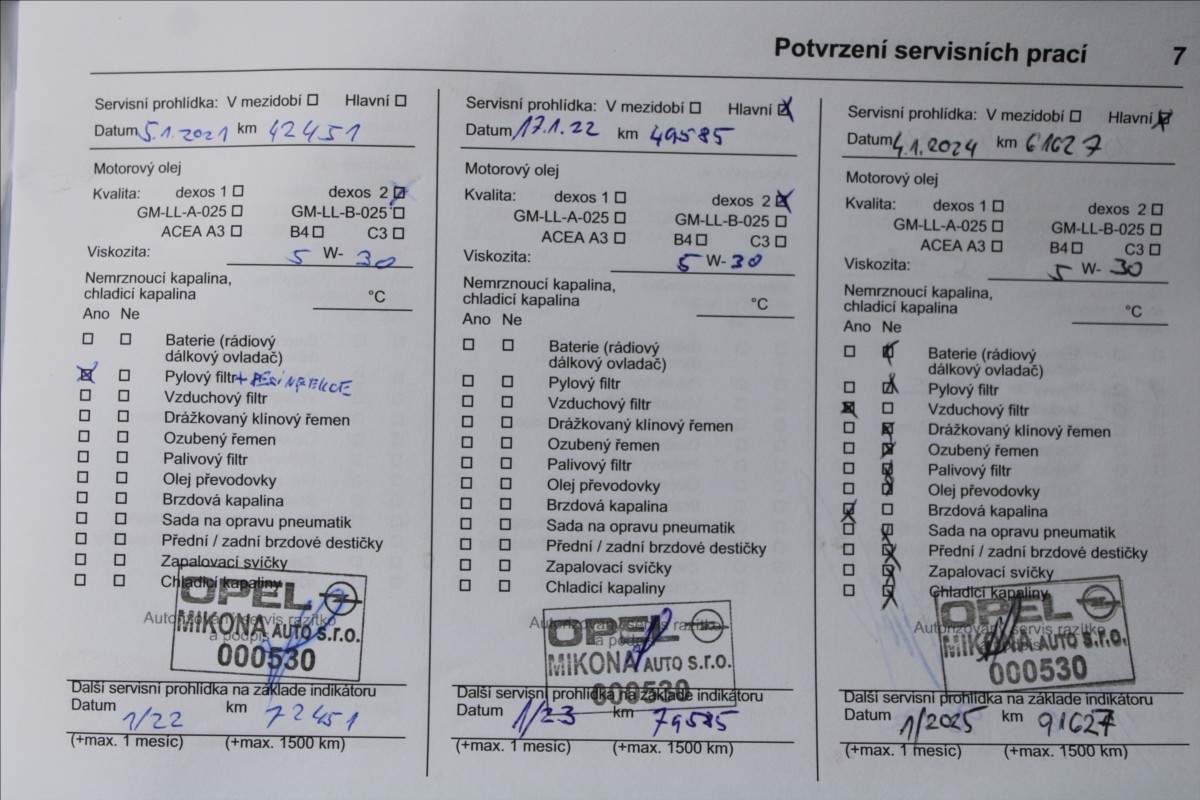 Potvrzení servisních prací 7
Servisní prohlídka: V mezidobí ☐ Hlavní ☐
Datum 5.1.2021 km 42451
Motorový olej
Kvalita: dexos 1 ☐ dexos 2 ☒
GM-LL-A-025 ☐ GM-LL-B-025 ☐
ACEA A3 ☐ B4 ☐ C3 ☐
Viskozita: 5 W- 30
Nemrznoucí kapalina,
chladicí kapalina °C
Ano Ne
☐ ☐ Baterie (rádiový
dálkový ovladač)
☒ ☐ Pylový filtr + DESINFEKCE
☐ ☐ Vzduchový filtr
☐ ☐ Drážkovaný klínový řemen
☐ ☐ Ozubený řemen
☐ ☐ Palivový filtr
☐ ☐ Olej převodovky
☐ ☐ Brzdová kapalina
☐ ☐ Sada na opravu pneumatik
☐ ☐ Přední / zadní brzdové destičky
☐ ☐ Zapalovací svíčky
☐ ☐ Chladicí kapaliny
OPEL
Autorizovaný servis razítko
MIKONA AUTO s.r.o.
a podpis
000530
Další servisní prohlídka na základe indikátoru
Datum 1/22 km 72451
(+max. 1 mesíc) (+max. 1500 km)
Servisní prohlídka: V mezidobí ☐ Hlavní ☒
Datum 17.1.22 km 49585
Motorový olej
Kvalita: dexos 1 ☐ dexos 2 ☒
GM-LL-A-025 ☐ GM-LL-B-025 ☐
ACEA A3 ☐ B4 ☐ C3 ☐
Viskozita: 5 W- 30
Nemrznoucí kapalina,
chladicí kapalina °C
Ano Ne
☐ ☐ Baterie (rádiový
dálkový ovladač)
☐ ☐ Pylový filtr
☐ ☐ Vzduchový filtr
☐ ☐ Drážkovaný klínový řemen
☐ ☐ Ozubený řemen
☐ ☐ Palivový filtr
☐ ☐ Olej převodovky
☐ ☐ Brzdová kapalina
☐ ☐ Sada na opravu pneumatik
☐ ☐ Přední / zadní brzdové destičky
☐ ☐ Zapalovací svíčky
☐ ☐ Chladicí kapaliny
OPEL
Autorizovaný servis razítko
a podpis
MIKONA AUTO s.r.o.
000530
Další servisní prohlídka na základe indikátoru
Datum 1/23 km 79585
(+max. 1 mesíc) (+max. 1500 km)
Servisní prohlídka: V mezidobí ☐ Hlavní ☒
Datum 4.1.2024 km 61627
Motorový olej
Kvalita: dexos 1 ☐ dexos 2 ☐
GM-LL-A-025 ☐ GM-LL-B-025 ☐
ACEA A3 ☐ B4 ☐ C3 ☐
Viskozita: 5 W- 30
Nemrznoucí kapalina,
chladicí kapalina °C
Ano Ne
☐ ☒ Baterie (rádiový
dálkový ovladač)
☐ ☒ Pylový filtr
☒ ☐ Vzduchový filtr
☐ ☒ Drážkovaný klínový řemen
☐ ☒ Ozubený řemen
☐ ☒ Palivový filtr
☐ ☒ Olej převodovky
☒ ☐ Brzdová kapalina
☐ ☒ Sada na opravu pneumatik
☐ ☒ Přední / zadní brzdové destičky
☐ ☒ Zapalovací svíčky
☐ ☒ Chladicí kapaliny
OPEL
Autorizovaný servis razítko
MIKONA AUTO s.r.o.
a podpis
000530
Další servisní prohlídka na základe indikátoru
Datum 1/2025 km 91627
(+max. 1 mesíc) (+max. 1500 km)